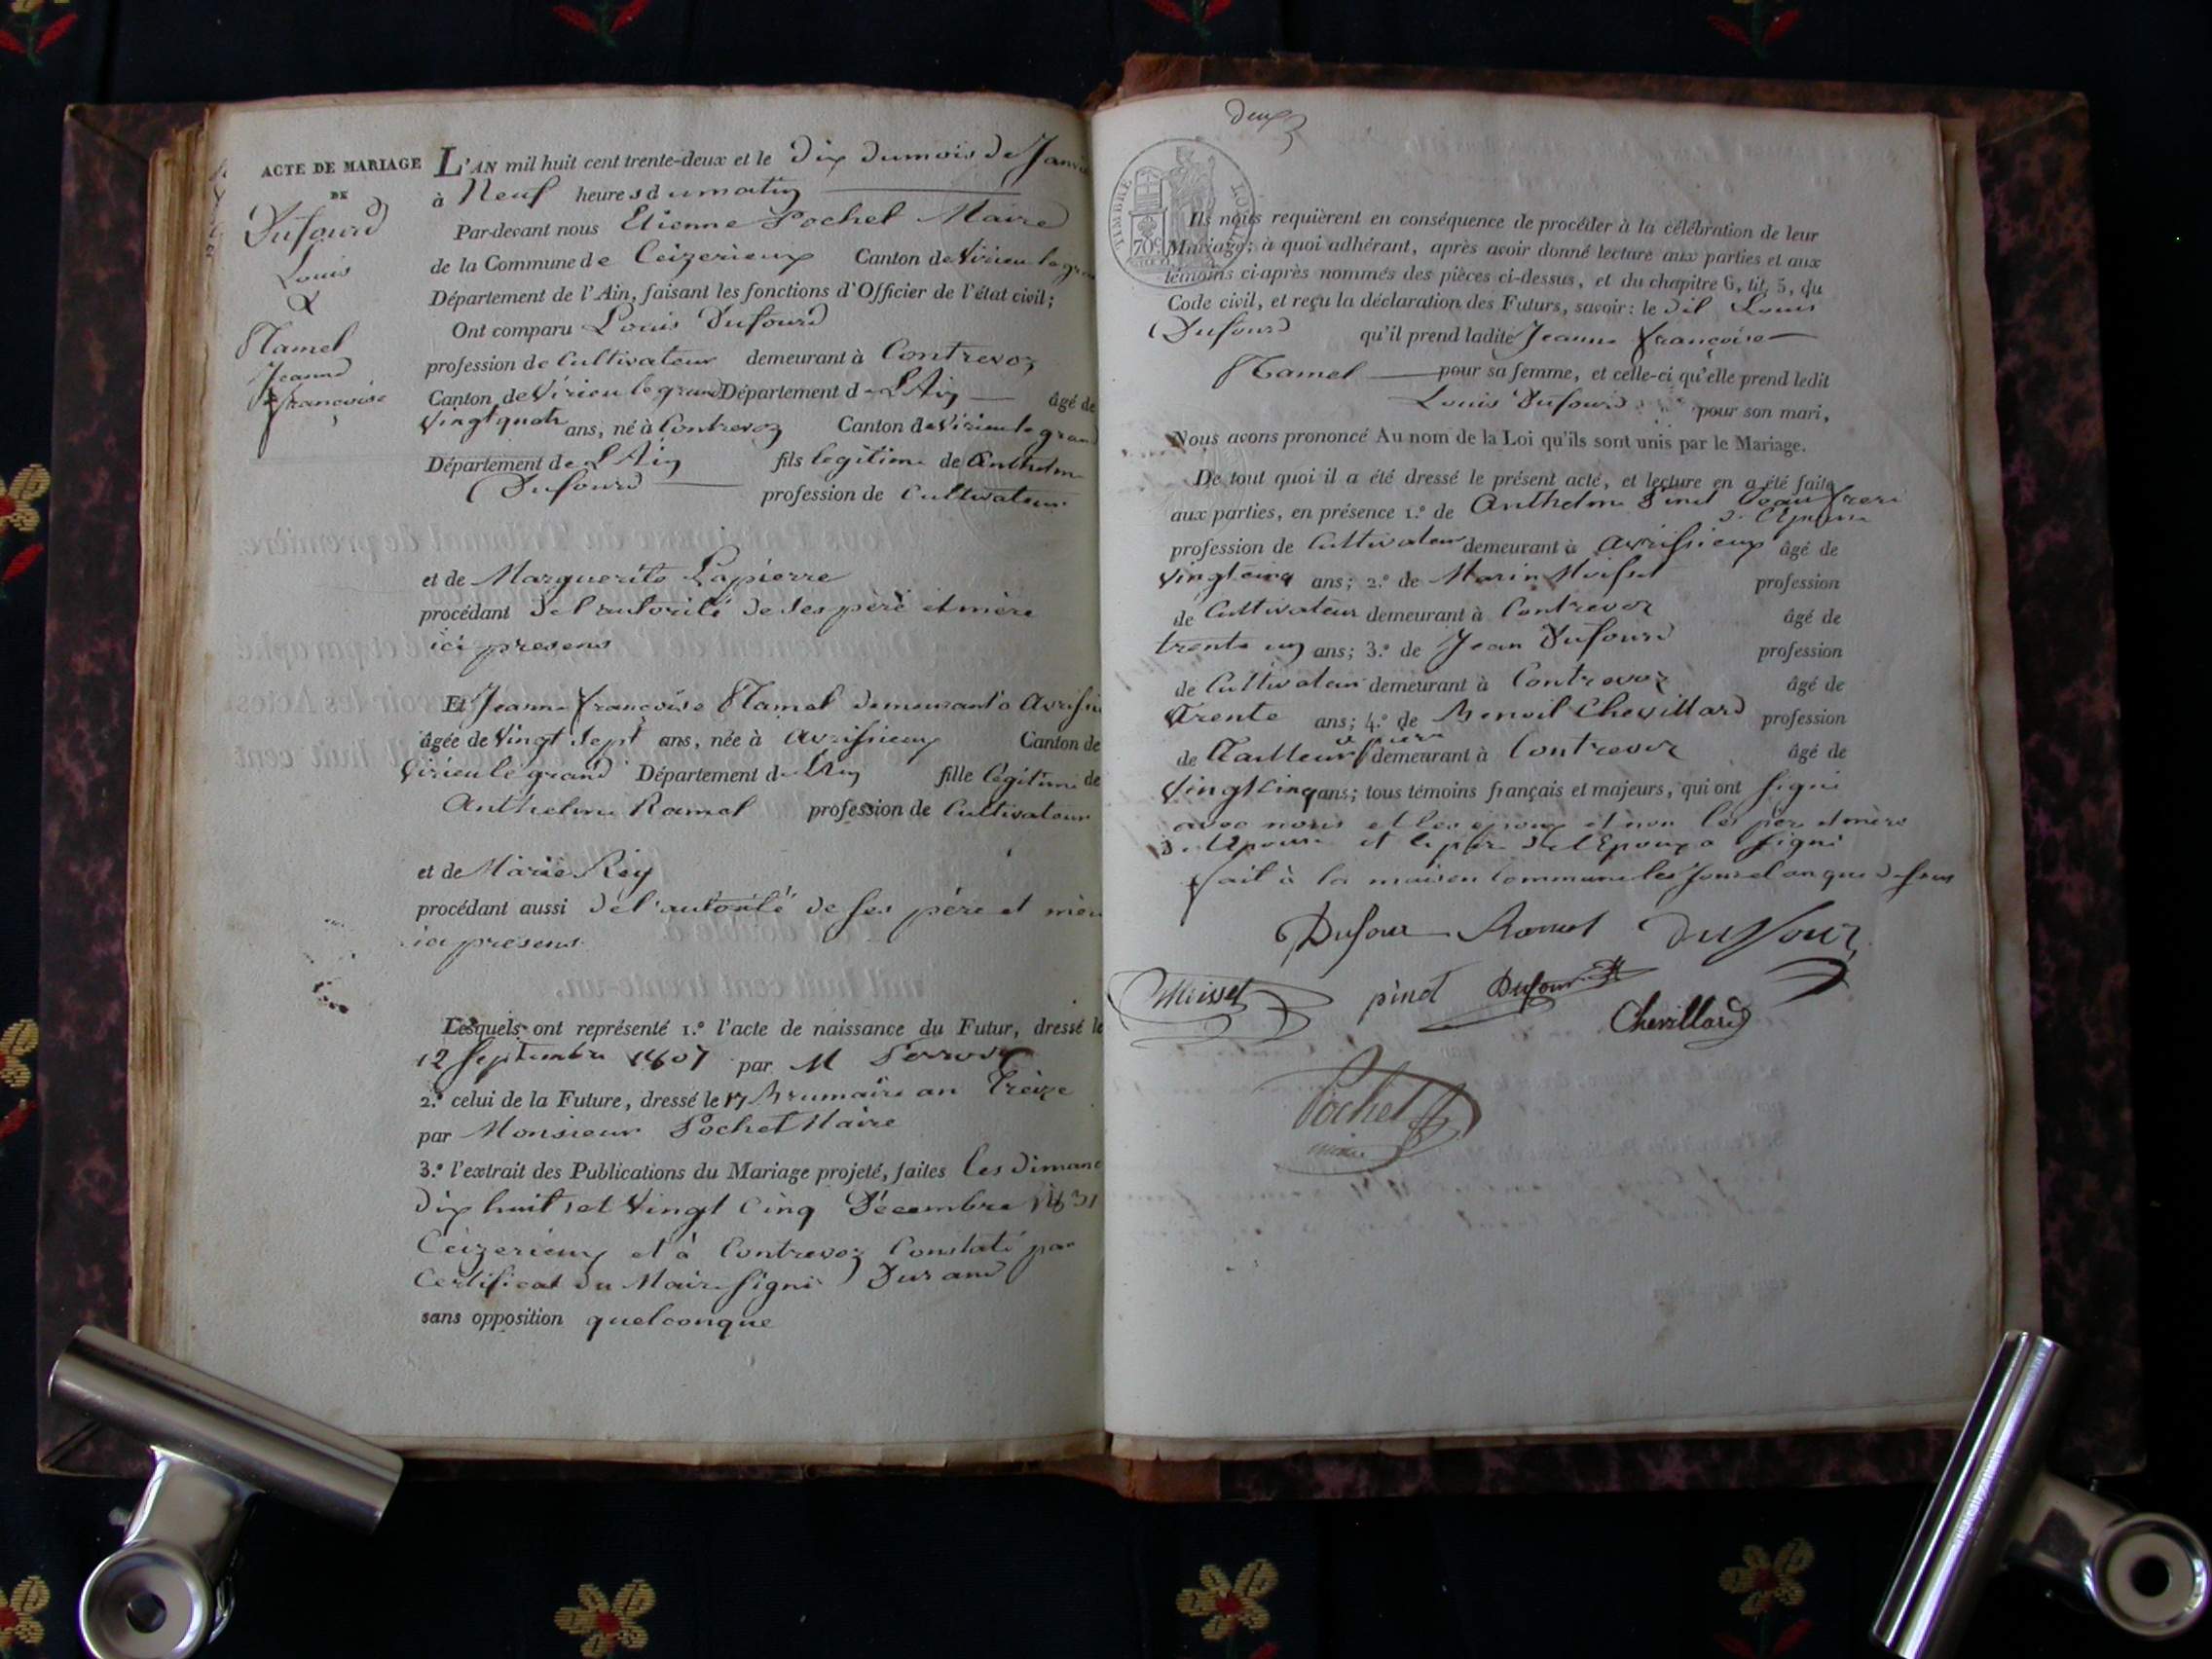 ACTE DE MARIAGE
DE
Dufourd
Louis
&
Ramel
Jeanne
françoise
L'AN mil huit cent trente-deux et le dix du mois de Janvie
à Neuf heures du matin
Par-devant nous Etienne Pochet Maire
de la Commune de Ceizerieux Canton de Virieu le gran
Département de l'Ain, faisant les fonctions d'Officier de l'état civil;
Ont comparu Louis Dufourd
profession de Cultivateur demeurant à Contrevoz
Canton de Virieu le grand Département de L'Ain âgé de
Vingt quatr ans, né à Contrevoz Canton de Virieu le grand
Département de L'Ain fils legitime de Anthelme
Dufourd profession de Cultivateur
et de Marguerite Lapierre
procédant de l'autorité de ses père et mère
ici presens
Et Jeanne françoise Ramel demeurant à Avrissieu
âgée de Vingt sept ans, née à Avrissieux Canton de
Virieu le grand Département de L'Ain fille légitime de
Anthelme Ramel profession de Cultivateur
et de Marie Rey
procédant aussi de l'autorité de ses père et mère
ici presens
Lesquels ont représenté 1.º l'acte de naissance du Futur, dressé le
12 Septembre 1807 par M
2.º celui de la Future, dressé le 17 Brumaire an Treize
par Monsieur Pochet Maire
3.º l'extrait des Publications du Mariage projeté, faites les dimanc
dix huit et Vingt Cinq Décembre 1831
Ceizerieux et à Contrevoz Constaté par
Certificat du Maire signé Durand
sans opposition quelconque
deux
TIMBRE ROYAL
70c
Ils nous requièrent en conséquence de procéder à la célébration de leur
Mariage; à quoi adhérant, après avoir donné lecture aux parties et aux
témoins ci-après nommés des pièces ci-dessus, et du chapitre 6, tit. 5, du
Code civil, et reçu la déclaration des Futurs, savoir: le dit Louis
Dufourd qu'il prend ladite Jeanne françoise
Ramel pour sa femme, et celle-ci qu'elle prend ledit
Louis Dufourd pour son mari,
Nous avons prononcé Au nom de la Loi qu'ils sont unis par le Mariage.
De tout quoi il a été dressé le présent acte, et lecture en a été faite
aux parties, en présence 1.º de Anthelme Pinet beau frere
de l'Epouse
profession de Cultivateur demeurant à Avrissieux âgé de
Vingt cinq ans; 2.º de Marin Moisset profession
de Cultivateur demeurant à Contrevoz âgé de
trente un ans; 3.º de Jean Dufourd profession
de Cultivateur demeurant à Contrevoz âgé de
Trente ans; 4.º de Benoit Chevillard profession
de Tailleur demeurant à Contrevoz âgé de
Vingt Cinq ans; tous témoins français et majeurs, qui ont signé
avec nous et les epoux et non les pere et mère
de l'Epouse et le père de l'Epoux a signé
fait à la maison Commune les Jour et an que dessus
Dufour Ramel Duffour
Moisset pinet Dufour
Chevillard
Pochet
maire